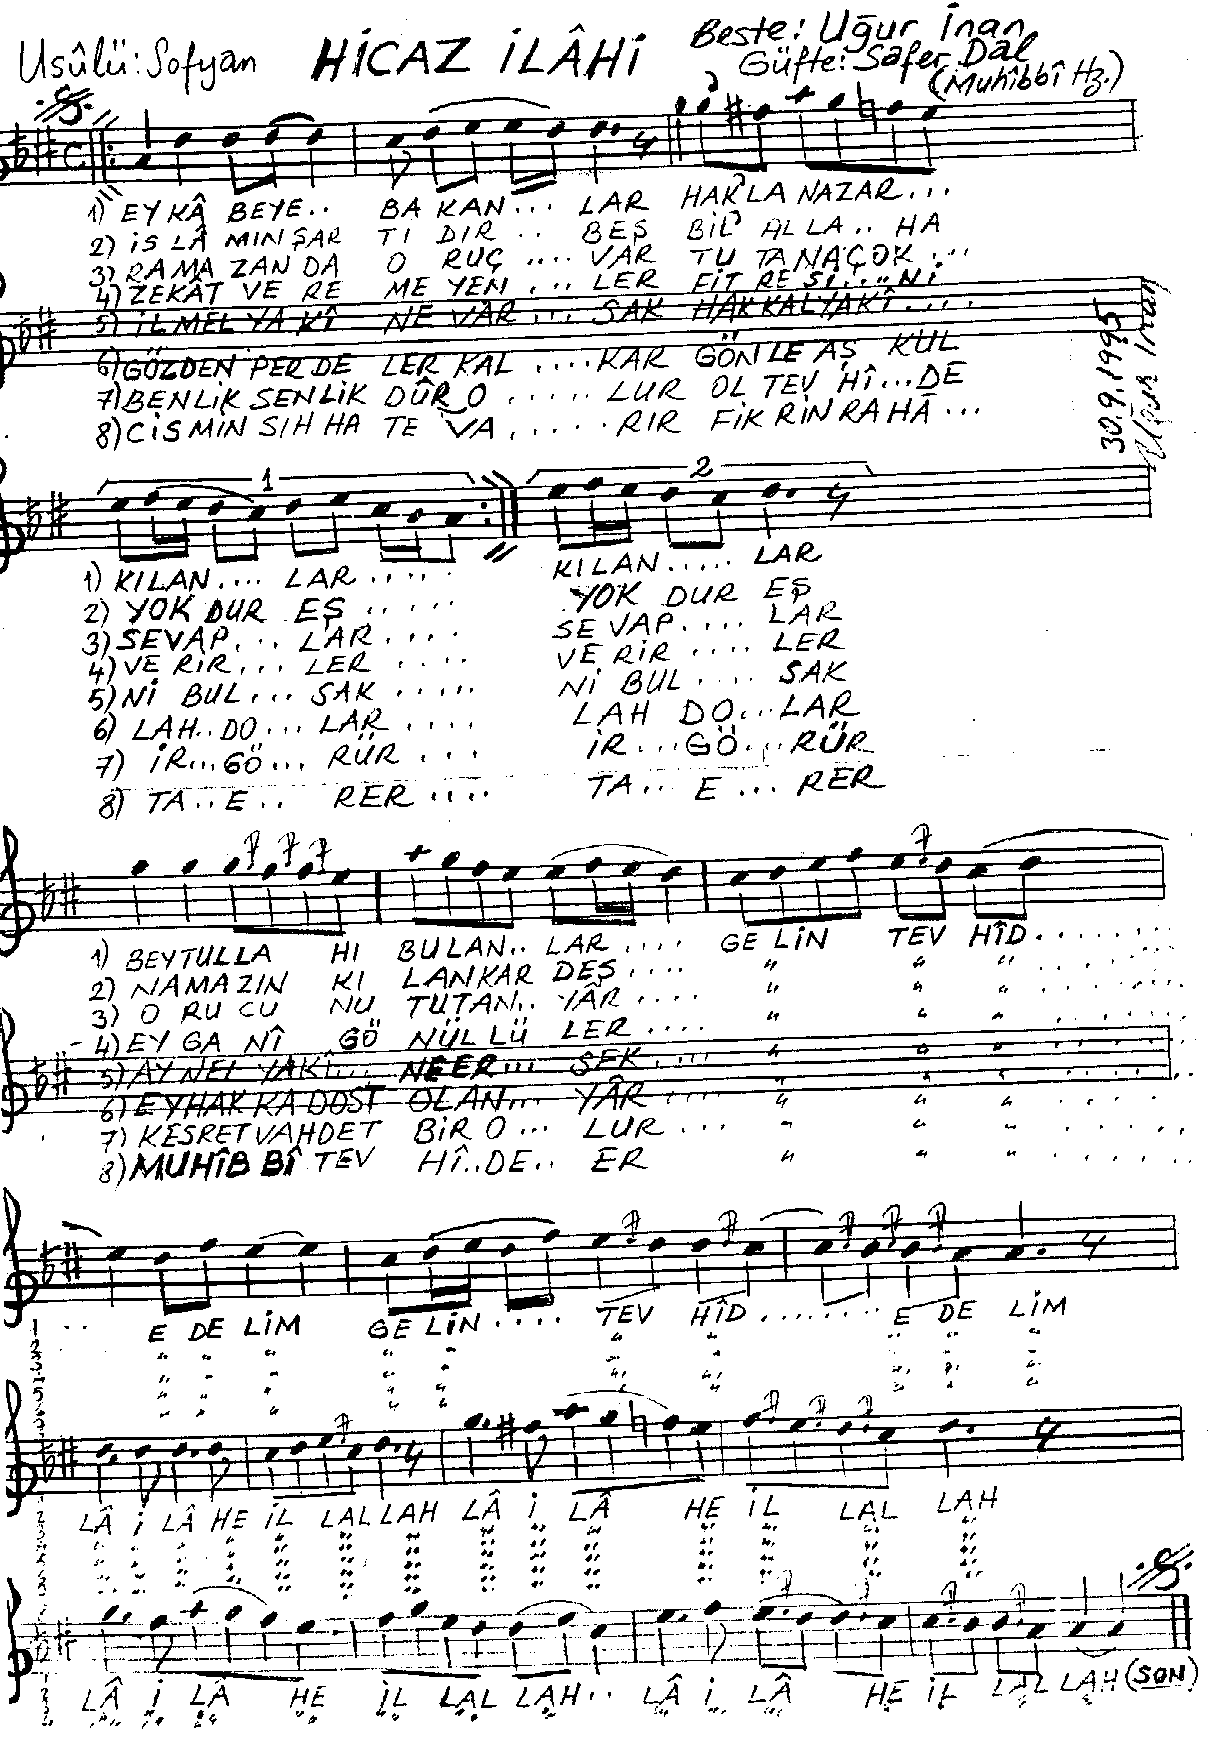 Usûlü: Sofyan HİCAZ İLÂHİ Beste: Uğur İnan
Güfte: Safer Dal
(Muhîbbî Hz.)
1) EY KÂ BEYE.. BA KAN... LAR HAK'LA NAZAR...
2) İS LÂ MIN ŞAR TI DIR .. BEŞ BİL' AL LA.. HA
3) RAMA ZAN DA O RUÇ .... VAR TU TANA ÇOK ...
4) ZEKÂT VE RE ME YEN ... LER FİT RE Sİ.... Nİ
5) İLMEL YA KÎ NE VAR... SAK HAK KAL YAKÎ....
6) GÖZDEN PER DE LER KAL .... KAR GÖN LE AŞ KUL
7) BENLİK SENLİK DÛR O ..... LUR OL TEV HÎ...DE
8) CİS MİN SIH HA TE VA ..... RIR FİK RİN RAHÂ...
30.9.1995
Uğur İnan
1 2
1) KILAN.... LAR ..... KILAN..... LAR
2) YOK DUR EŞ ..... YOK DUR EŞ
3) SEVAP... LAR .... SE VAP.... LAR
4) VE RİR... LER .... VE RİR .... LER
5) Nİ BUL ... SAK ..... Nİ BUL .... SAK
6) LAH..DO... LAR .... LAH DO...LAR
7) İR...GÖ... RÜR ... İR...GÖ...RÜR
8) TA..E.. RER .... TA.. E ... RER
1) BEYTULLA HI BULAN.. LAR .... GE LİN TEV HÎD........
2) NAMAZIN KI LANKAR DEŞ .... " " "......
3) O RU CU NU TUTAN.. YÂR .... " " "......
4) EY GA NÎ GÖ NÜL LÜ LER .... " " "......
5) AYNEL YAKÎ... NE ER... SEK .... " " "......
6) EY HAK KA DOST OLAN... YÂR .... " " "......
7) KESRET VAHDET BİR O... LUR ... " " "......
8) MUHÎB BÎ TEV HÎ..DE.. ER " " "......
.. E DE LİM GE LİN .... TEV HÎD ....... E DE LİM
LÂ İ LÂ HE İL LAL LAH LÂ İ LÂ HE İL LAL LAH
LÂ İ LÂ HE İL LAL LAH.. LÂ İ LÂ HE İL LAL LAH (SON)